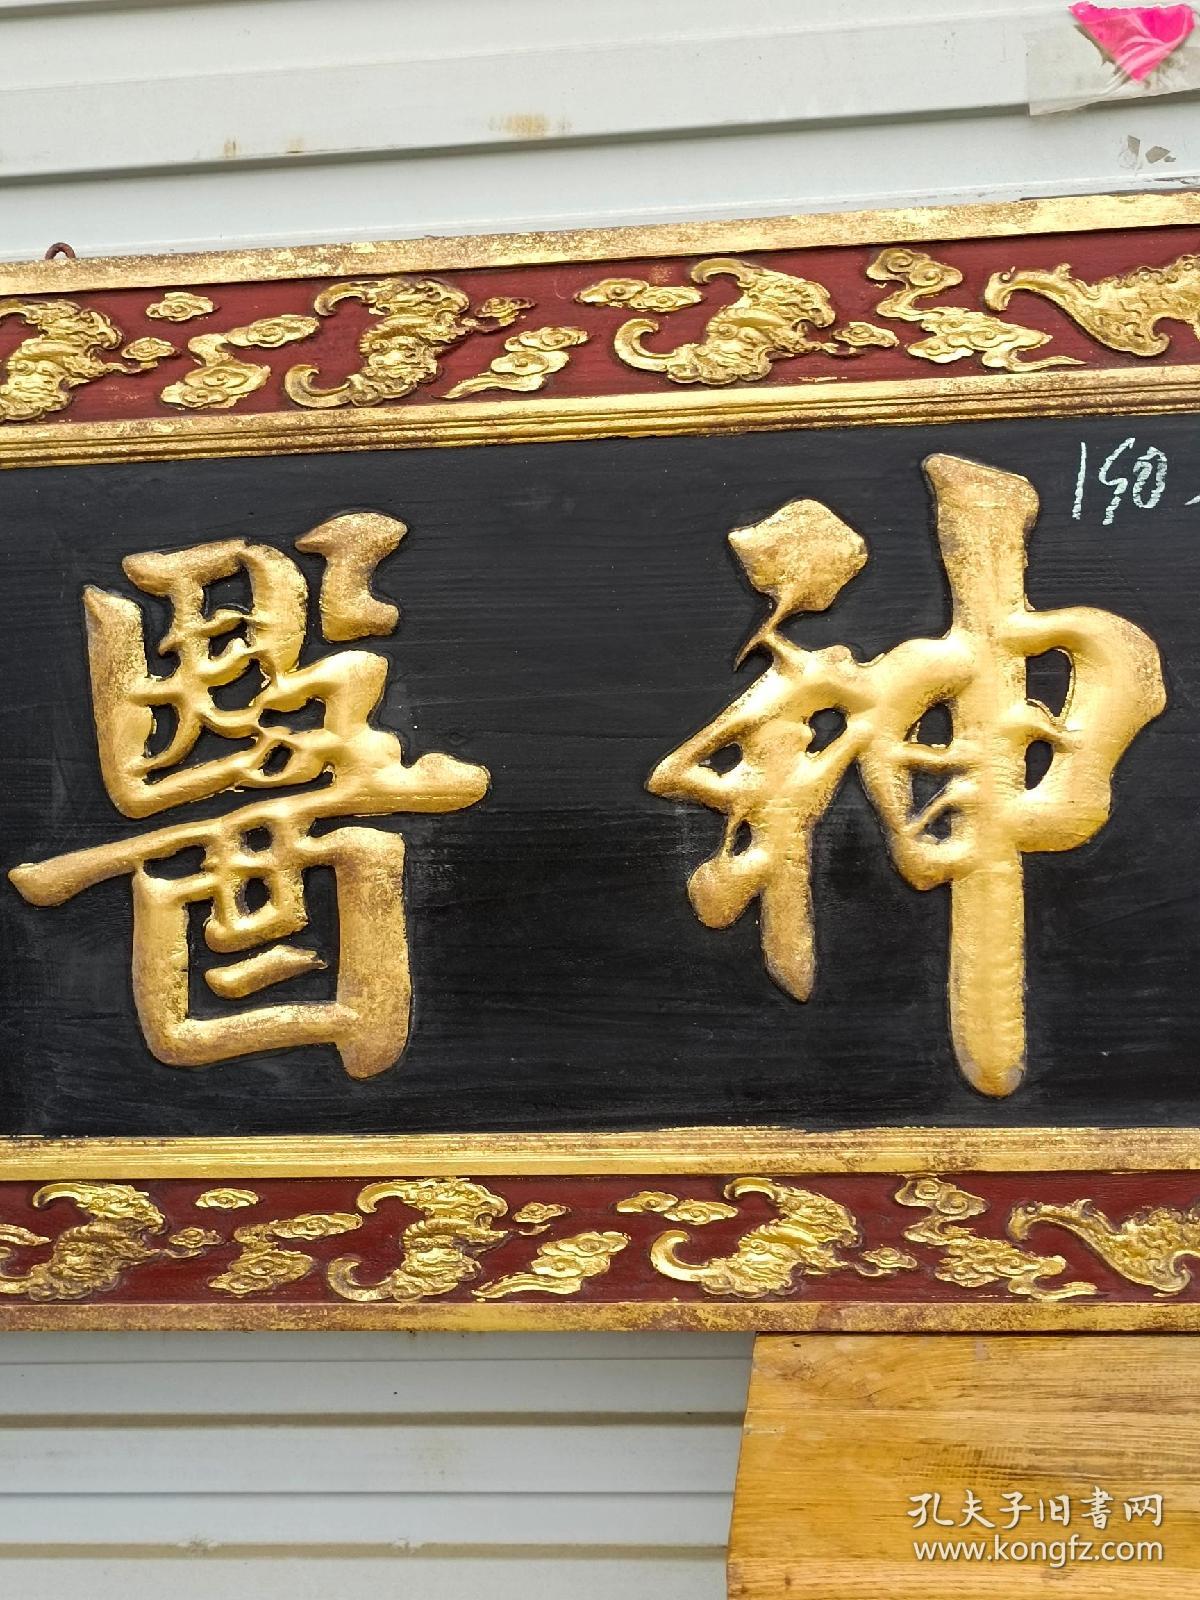 神醫
150
孔夫子旧書网
www.kongfz.com